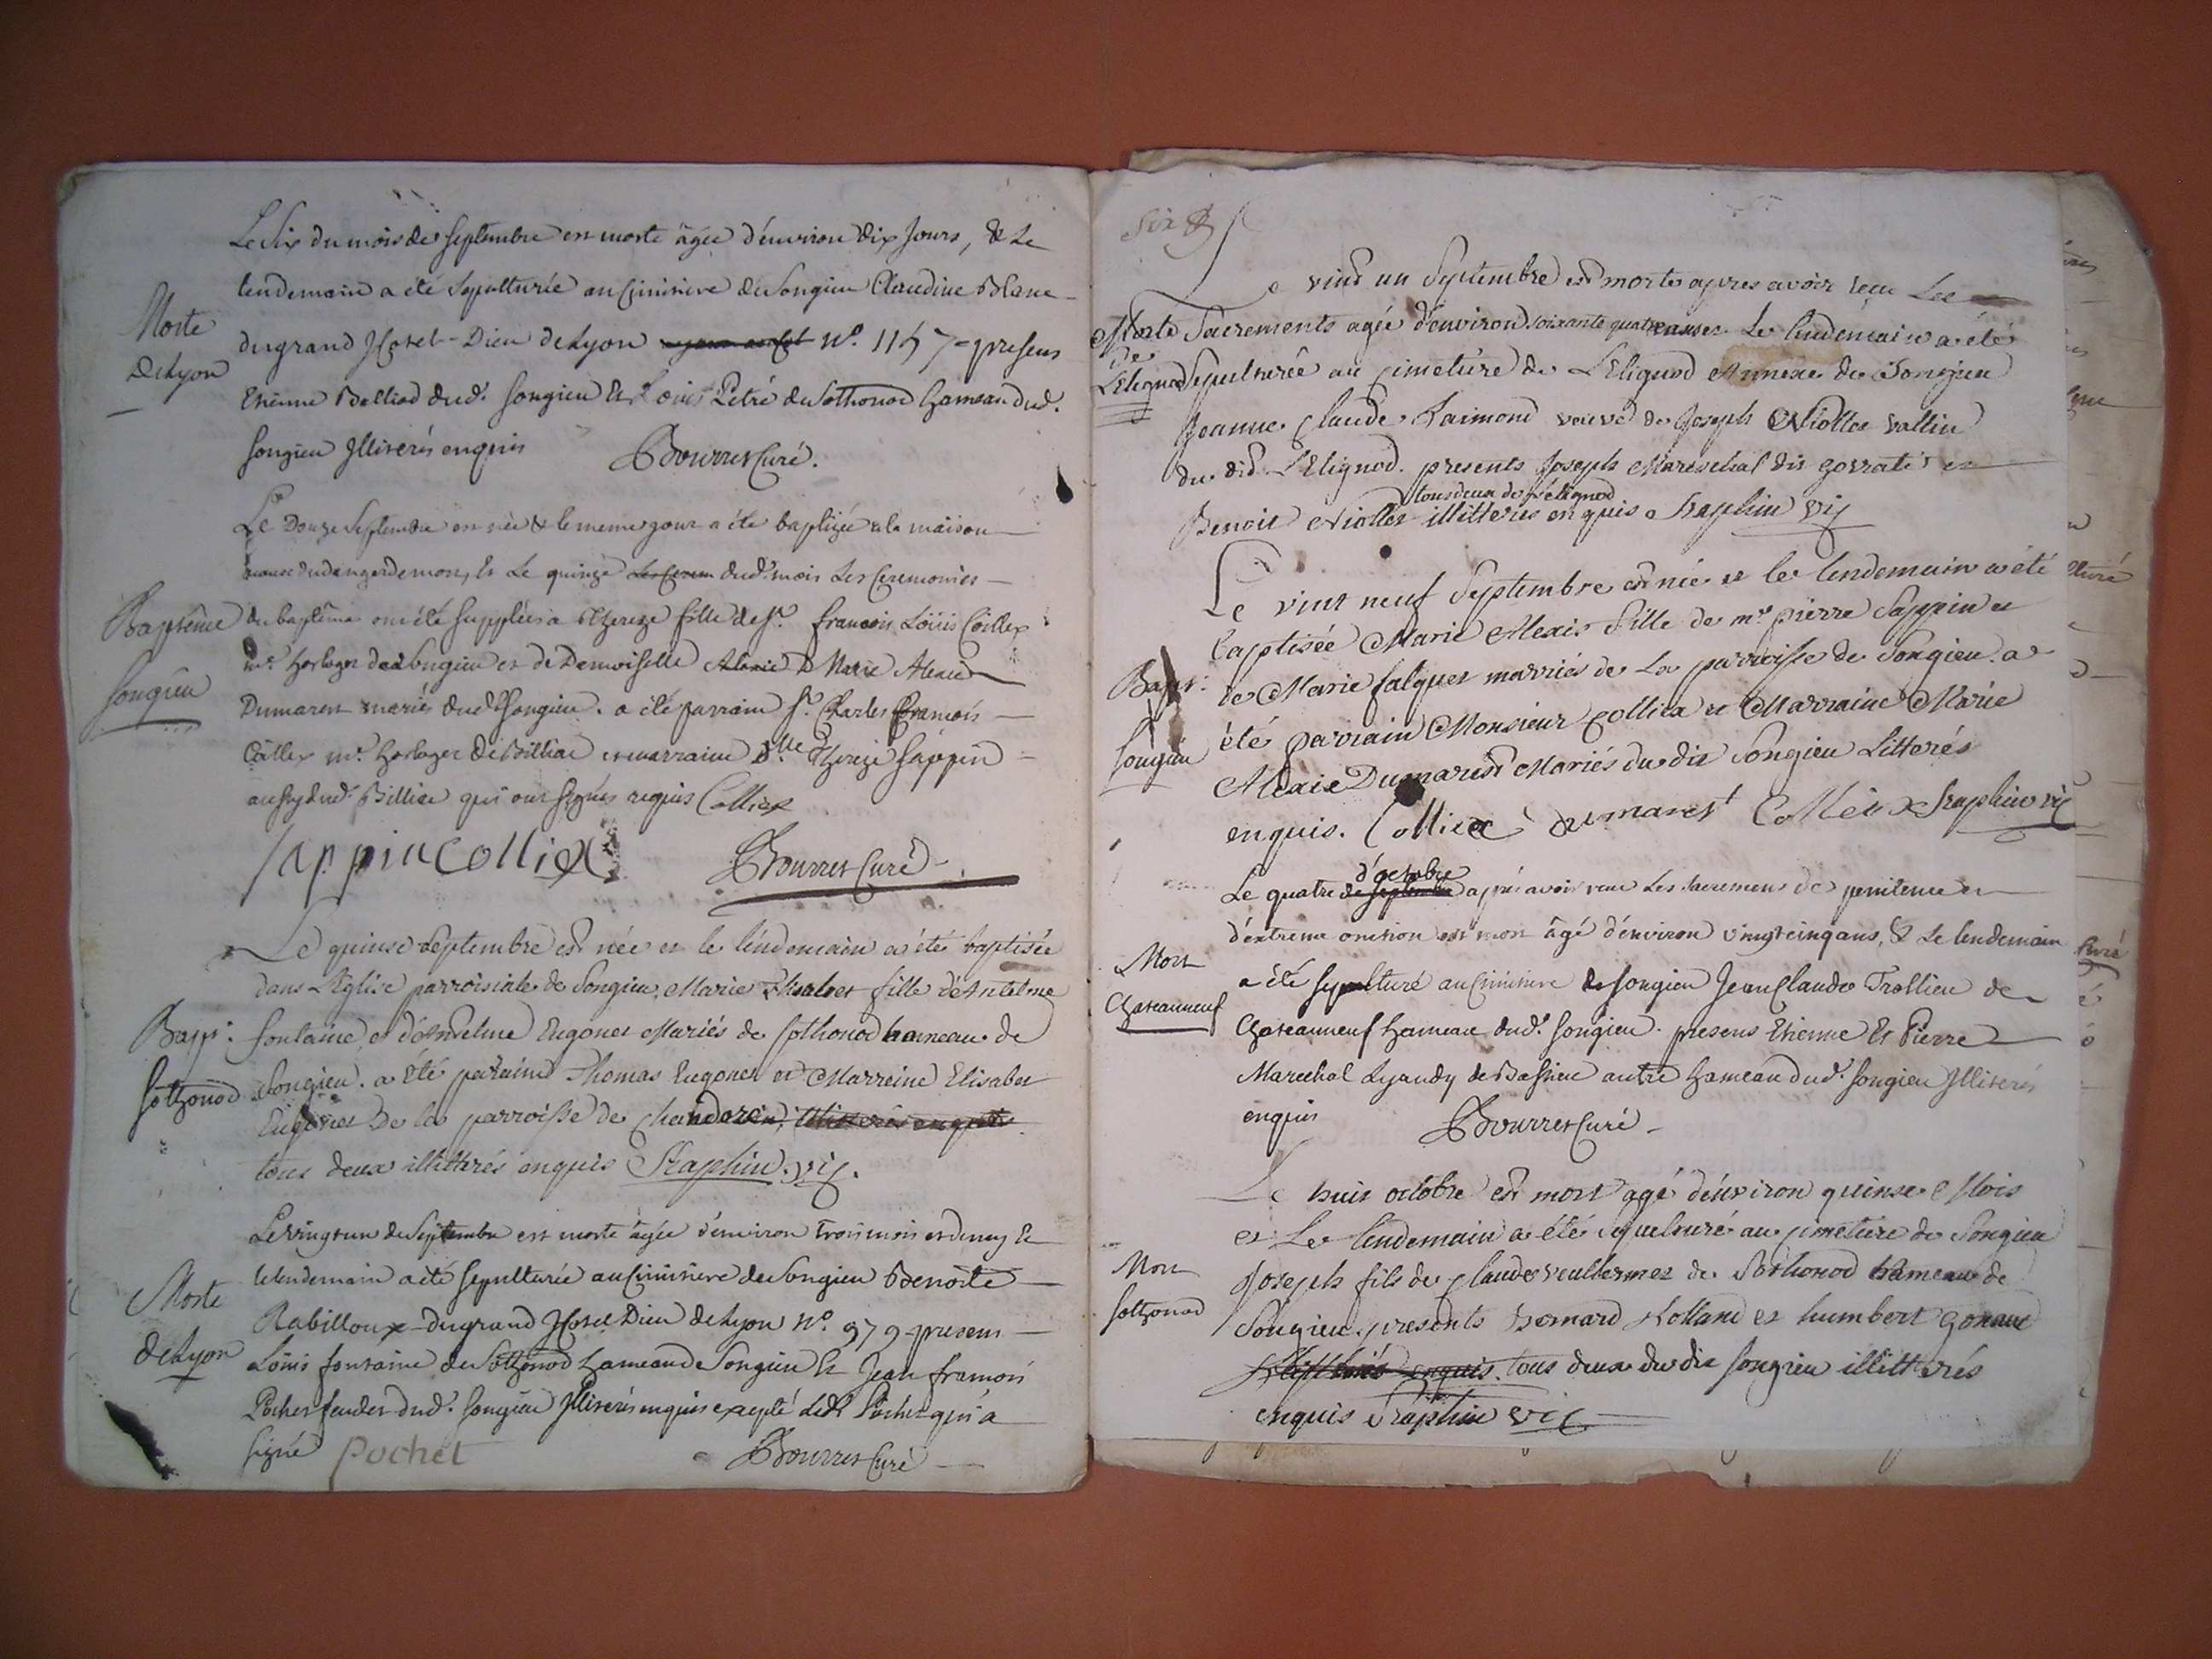 Le Six du mois de septembre est morte âgée d'environ dix jours, & Le
lendemain a été sepulturée au Cimitiere de Songieu Claudine Blanc
Morte
de Lyon
du grand Hotel-Dieu de Lyon n°. 1157 - presens
Etienne Balliod dud. Songieu Et Louis Petré de Sothonod hameau dud.
Songieu Illiterés enquis Bourret Curé.
Le Douze Septembre est née & le meme jour a été baptizée a la maison
cause du danger de mort, Et Le quinze dud. mois Les Ceremonies
Baptême
Songieu
du baptême ont été supplées a Thereze fille de sr. francois Louis Collex
mr. horloger de Songieu et de Demoiselle Marie Alexie
Dumarest mariés dud. Songieu. a été parrain sr. Charles francois
Collex mr. horloger de Billiat et marraine dlle. Thereze Sappin
aussy dud. Billiat qui ont signés requis Colliex
Sappin Colliex Bourret Curé
Le quinse septembre est née et le lendemain a été baptisée
dans L'Eglise parroisiale de Songieu, Marie Elisabet fille d'Antelme
Bapt:
Sothonod
fontaine, et d'Antelme Eugonet Mariés de Sothonod hameau de
Songieu. a été parain Thomas Eugonet et Marreine Elisabet
Eugonet De la parroisse de illitterés enquis
tous deux illitterés enquis Scraphin. vic.
Le vingt un de Septembre est morte âgée d'environ trois mois et demy Et
le lendemain a été sepulturée au Cimitiere de Songieu Benoite
Morte
de Lyon
Rabilloux du grand Hotel Dieu de Lyon n°. 979 presens
Louis fontaine de Sothonod hameau de Songieu Et Jean francois
Pochet dud. Songieu Illiterés enquis excepté led. Pochet qui a
signé Pochet Bourret Curé
Six
Le vint un Septembre est morte apres avoir reçu Les
Morte
de
L'Elignod
Sacrements agée d'environ soixante quatre anset Le lendemain a été
Sepulturée au cimetiere de L'Elignod Annexe de Songieu
Jeanne Claude Raimond veuve de Joseph Niollet vallin
du dit L'Elignod. presents Joseph Mareschal dit gorrati et
tous deux de l'élignod
Benoit Niollet illitterés enquis Scraphin vic
Le vint neuf Septembre est née et le lendemain a été
baptisée Marie Alexis fille de mr. pierre Sappin et
Bapt:
Songieu
de Marie falquet marriés de La parroisse de Songieu. a
été parrain Monsieur Colliex et Marraine Marie
Alexie Dumarest Mariés du dit Songieu Litterés
enquis. Colliex dumarest Colleix Scraphin vic
d'octobre
Le quatre de septembre après avoir reçu Les sacremens de penitence et
d'extreme onction est mort âgé d'environ vingt cinq ans, & Le lendemain
Mort
Chateauneuf
a été sepulturé au Cimitiere de Songieu Jean Claude Trollieu de
Chateauneuf hameau dud. Songieu. presens Etienne Et Pierre
Marechal Lyaudy de Bassieu autre hameau dud. Songieu Illiterés
enquis Bourret Curé
Le huit octobre est mort agé d'environ quinse Mois
et Le lendemain a été sepulturé au cimetiere de Songieu
Mort
Sothonod
Joseph fils de Claude veullermet de Sothonod hameau de
Songieu. presents bernard Rolland et humbert gonand
enquis. tous deux du dit Songieu illitterés
enquis Scraphin vic